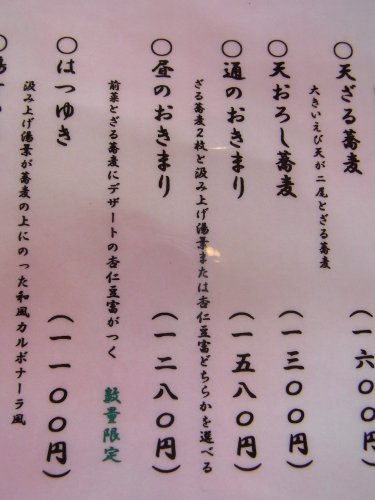 〇天ざる蕎麦（一六〇〇円）
大きいえび天が二尾とざる蕎麦
〇天おろし蕎麦（一三〇〇円）
〇通のおきまり（一五八〇円）
ざる蕎麦2枚と汲み上げ湯葉または杏仁豆富どちらかを選べる
〇昼のおきまり（一二八〇円）
前菜とざる蕎麦にデザートの杏仁豆富がつく 数量限定
〇はつゆき（一一〇〇円）
汲み上げ湯葉が蕎麦の上にのった和風カルボナーラ風